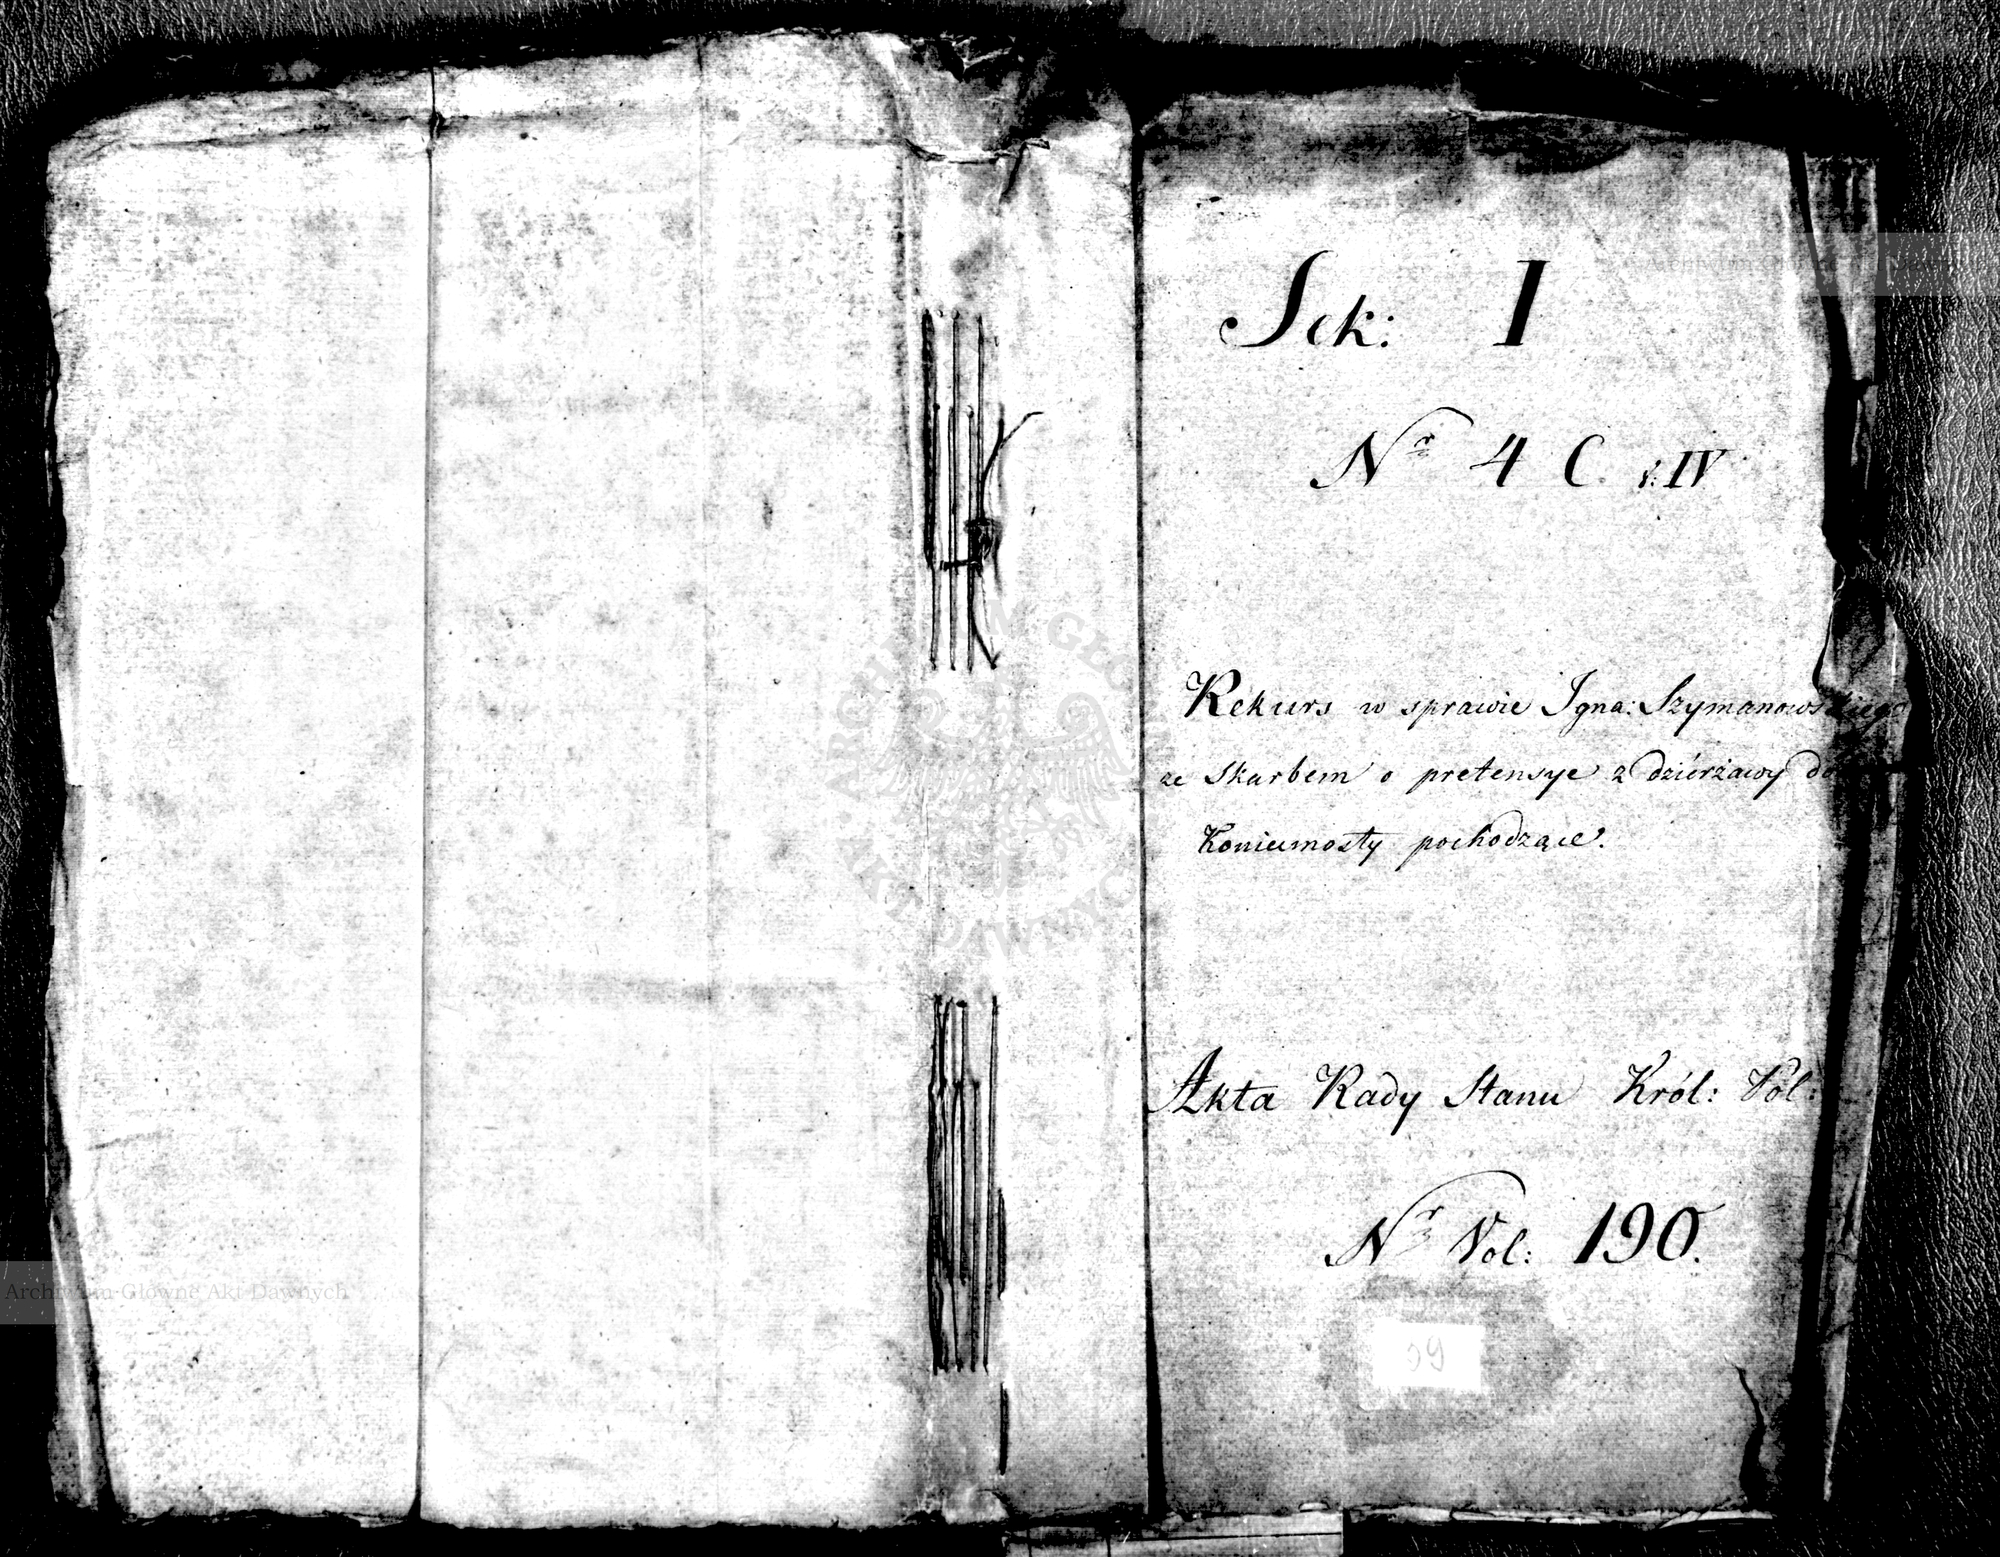 Sek: I
Nr 4 C. v: IV
Rekurs w sprawie Igna: Szymanowskiego
ze Skarbem o pretensye z dziérżawy
Koniecmosty pochodzące.
Akta Rady Stanu Król: Pol:
Nr Vol: 190.
Archiwum Główne Akt Dawnych
ARCHIWUM GŁÓWNE AKT DAWNYCH